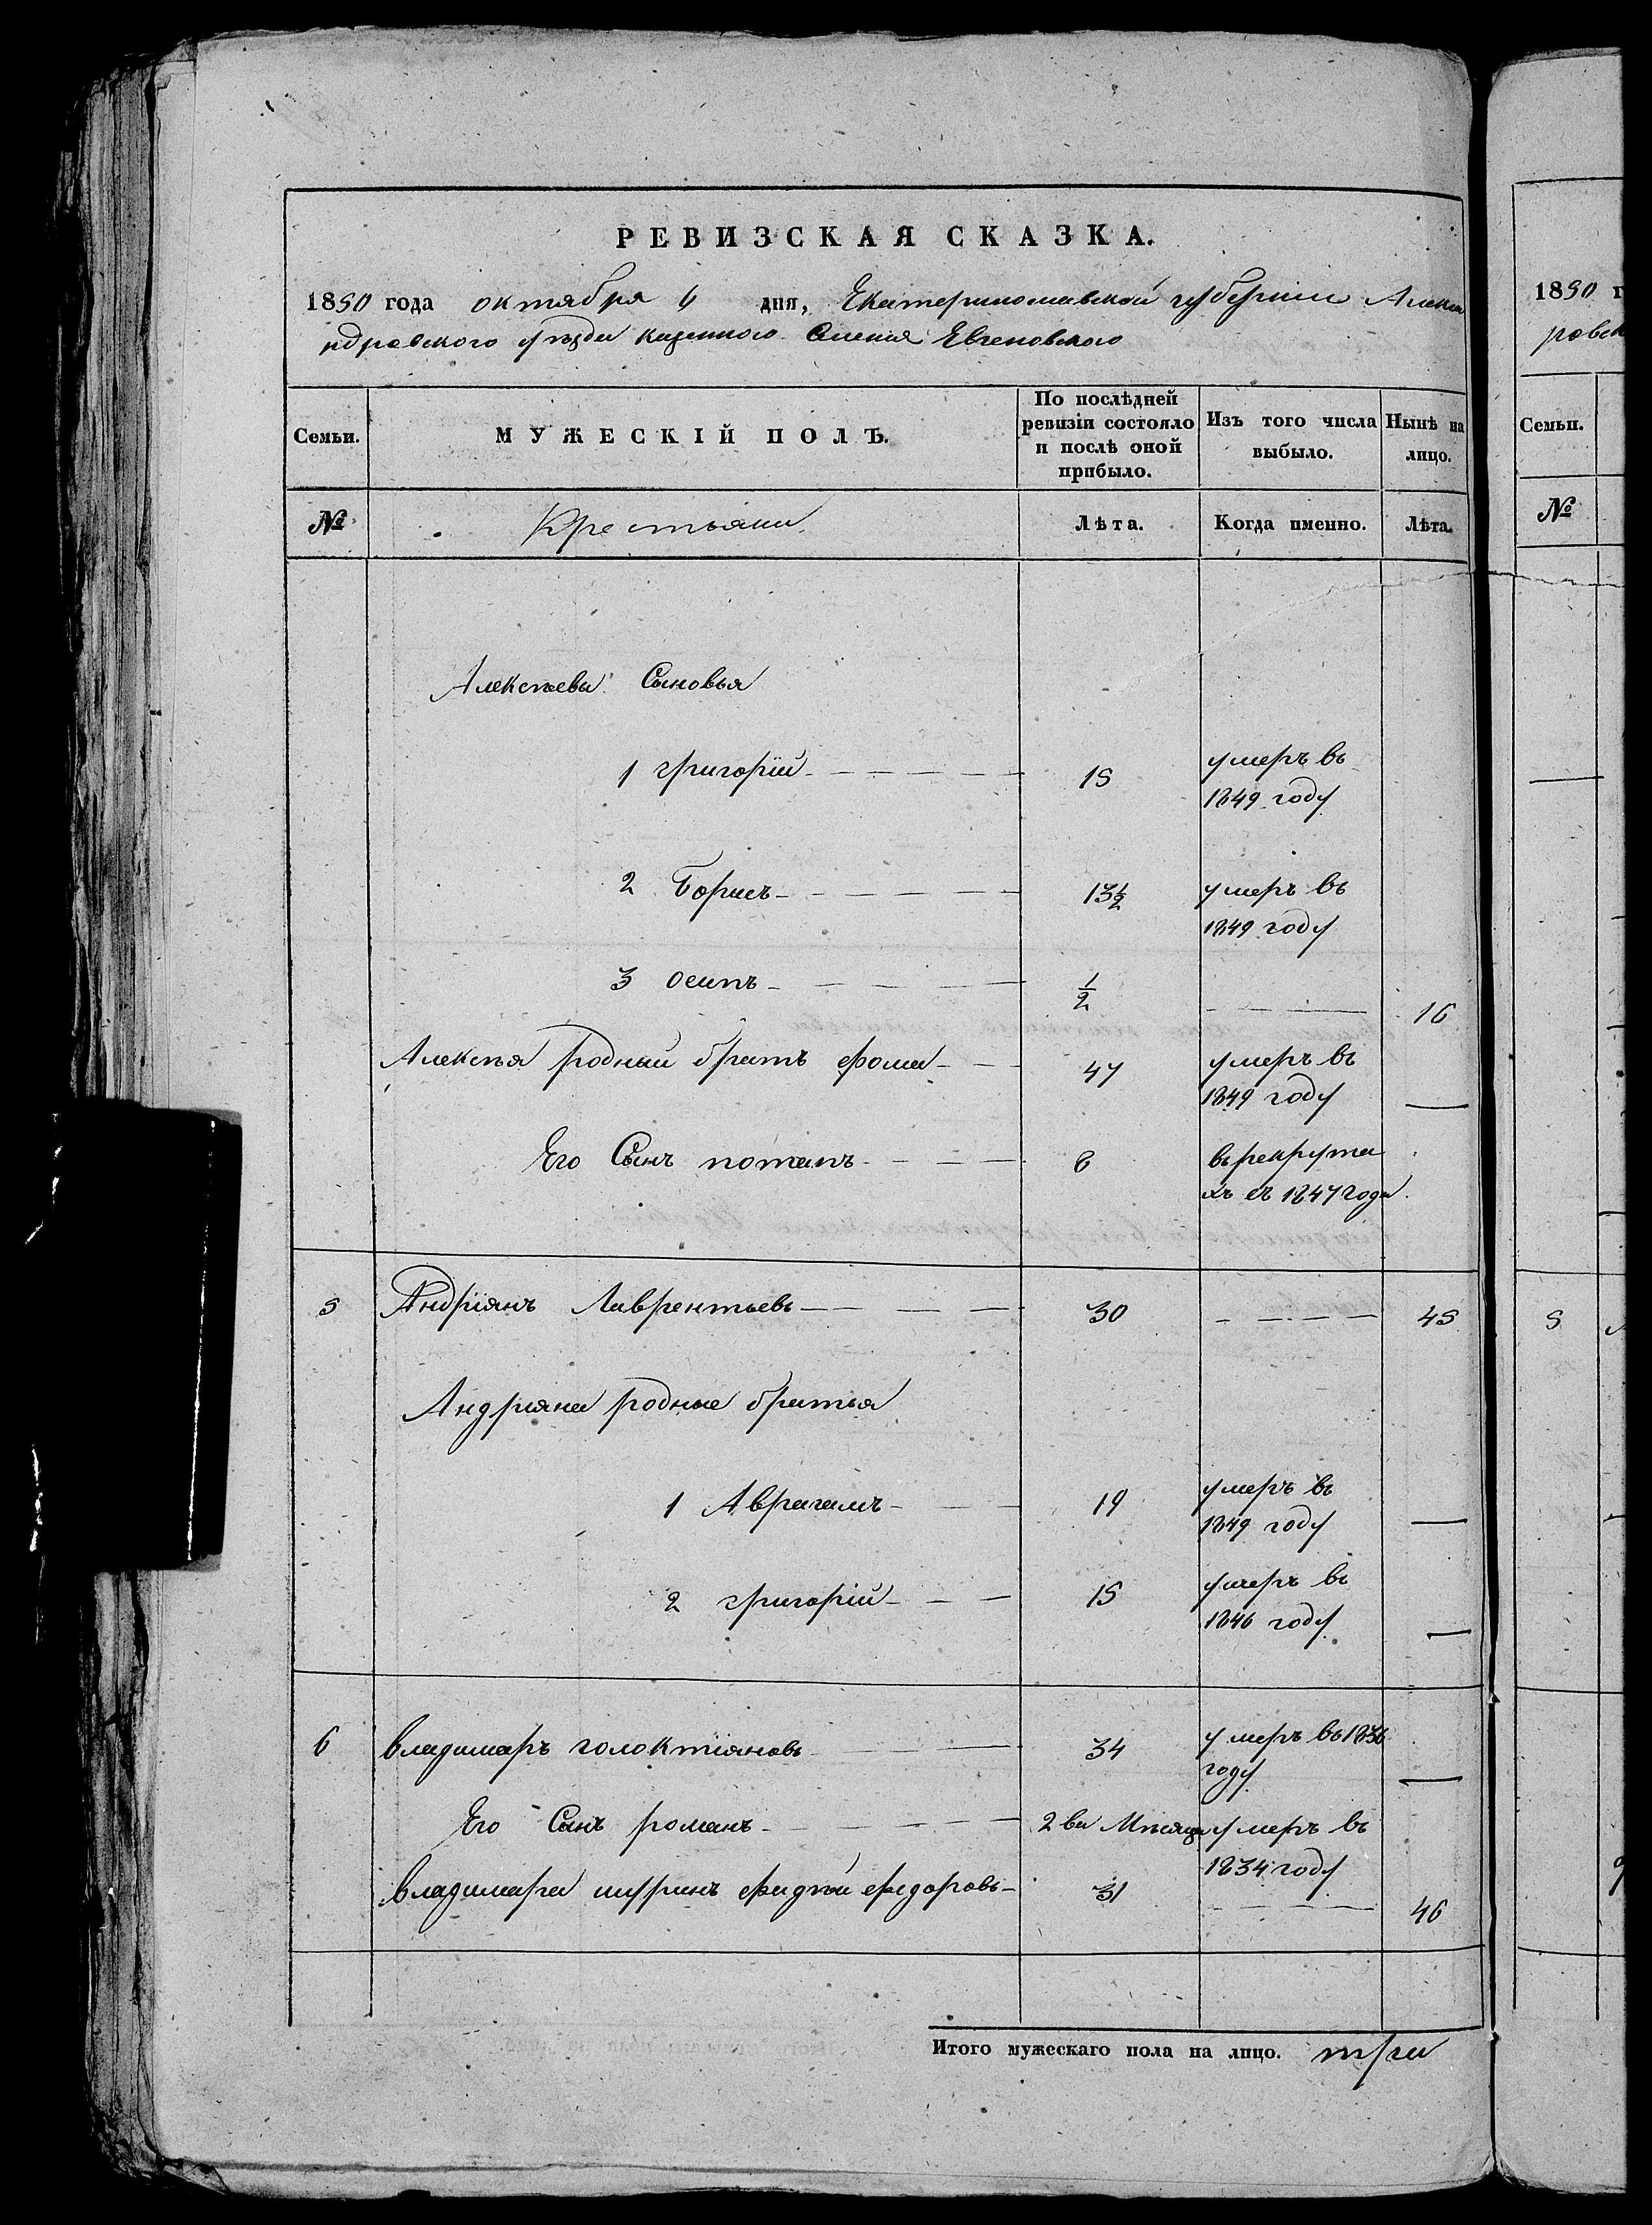 РЕВИЗСКАЯ СКАЗКА.
1850 года октября 6 дня, Екатеринославской губернии Алекса
ндровского уѣзда казенного Селения Евгеновского
Семьи. МУЖЕСКІЙ ПОЛЪ. По послѣдней ревизіи состояло и послѣ оной прибыло. Изъ того числа выбыло. Нынѣ на лицо.
№ Крестьяни Лѣта. Когда именно. Лѣта.
Алексѣевы Сыновья
1 григорій 15 умеръ въ
1849 году
2 Борисъ 13½ умеръ въ
1849 году
3 осипъ ½ 16
Алексѣя родный братъ фома 47 умеръ въ
1849 году
Его Сынъ потапъ 8 въ рекрута
хъ съ 1847 года
5 Андріянъ Лаврентьевъ 30 45
Андріяна родные братья
1 Аврагамъ 19 умеръ въ
1849 году
2 григорій 15 умеръ въ
1846 году
6 владимиръ голоктіяновъ 34 умеръ въ 1836
году
Его Сынъ романъ 2 ва Мѣсяца умеръ въ
1834 году
владимира шуринъ федоровъ 31 46
Итого мужескаго пола на лицо. три
1850 г
ровск
Семьи.
№
5